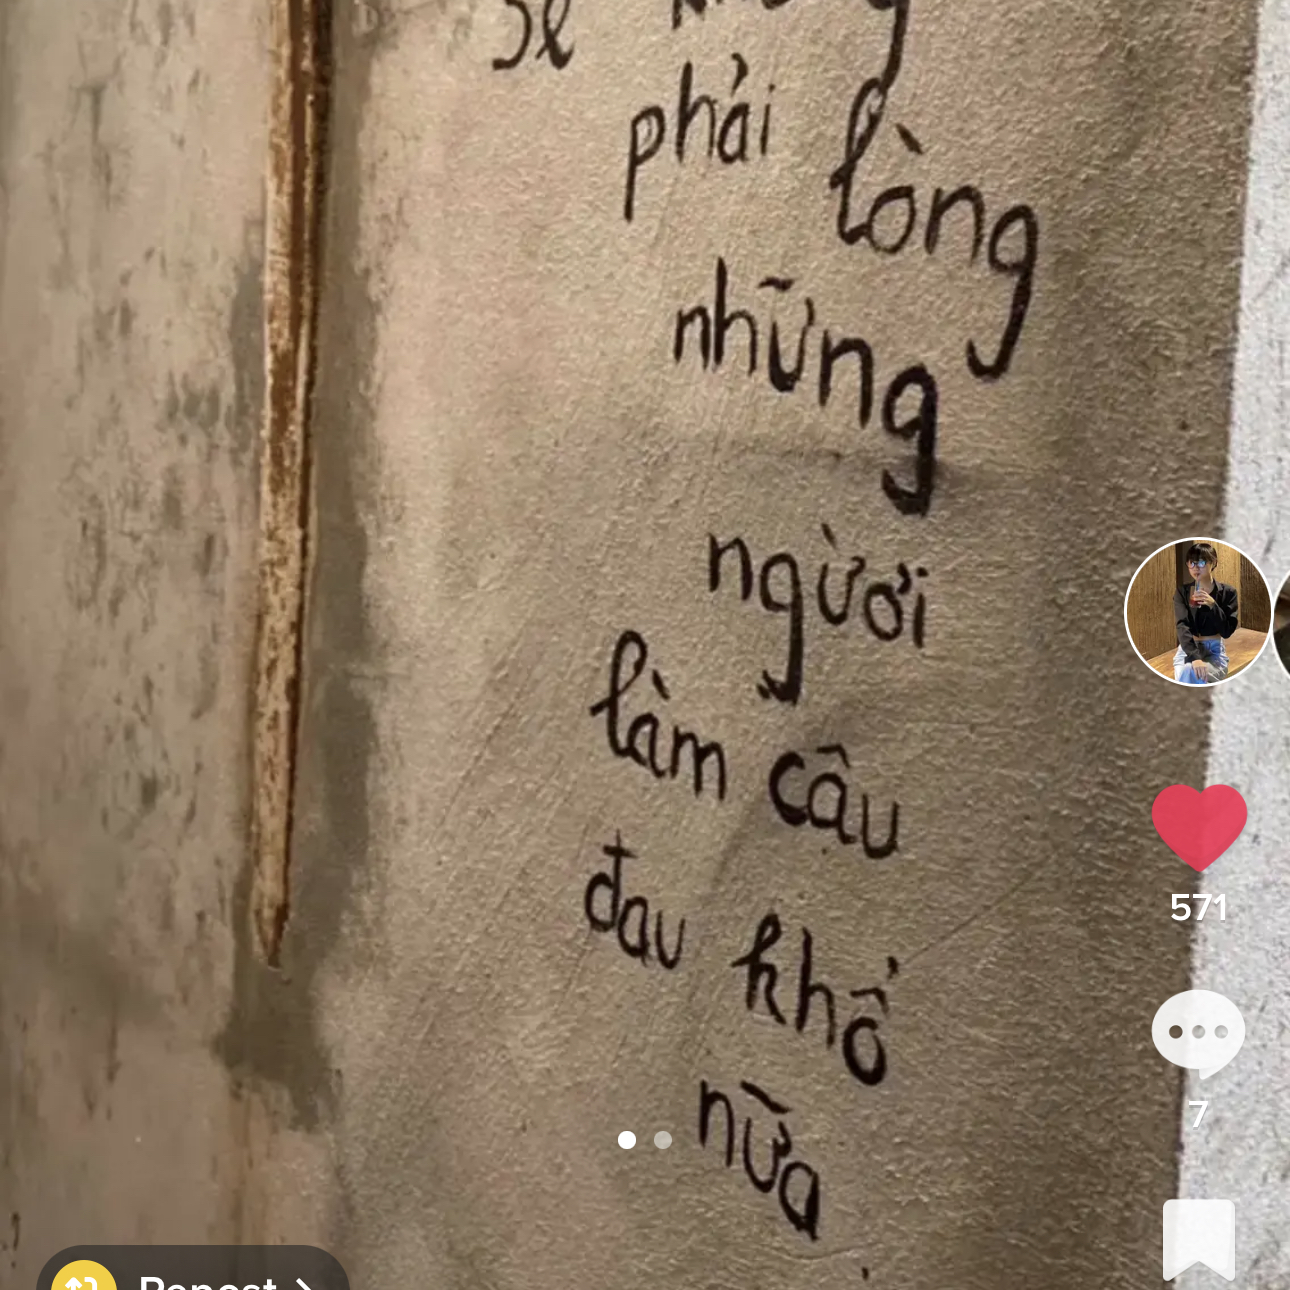 sẽ không
phải lòng
những
người
làm cậu
đau khổ
nữa
571
7
Repost >